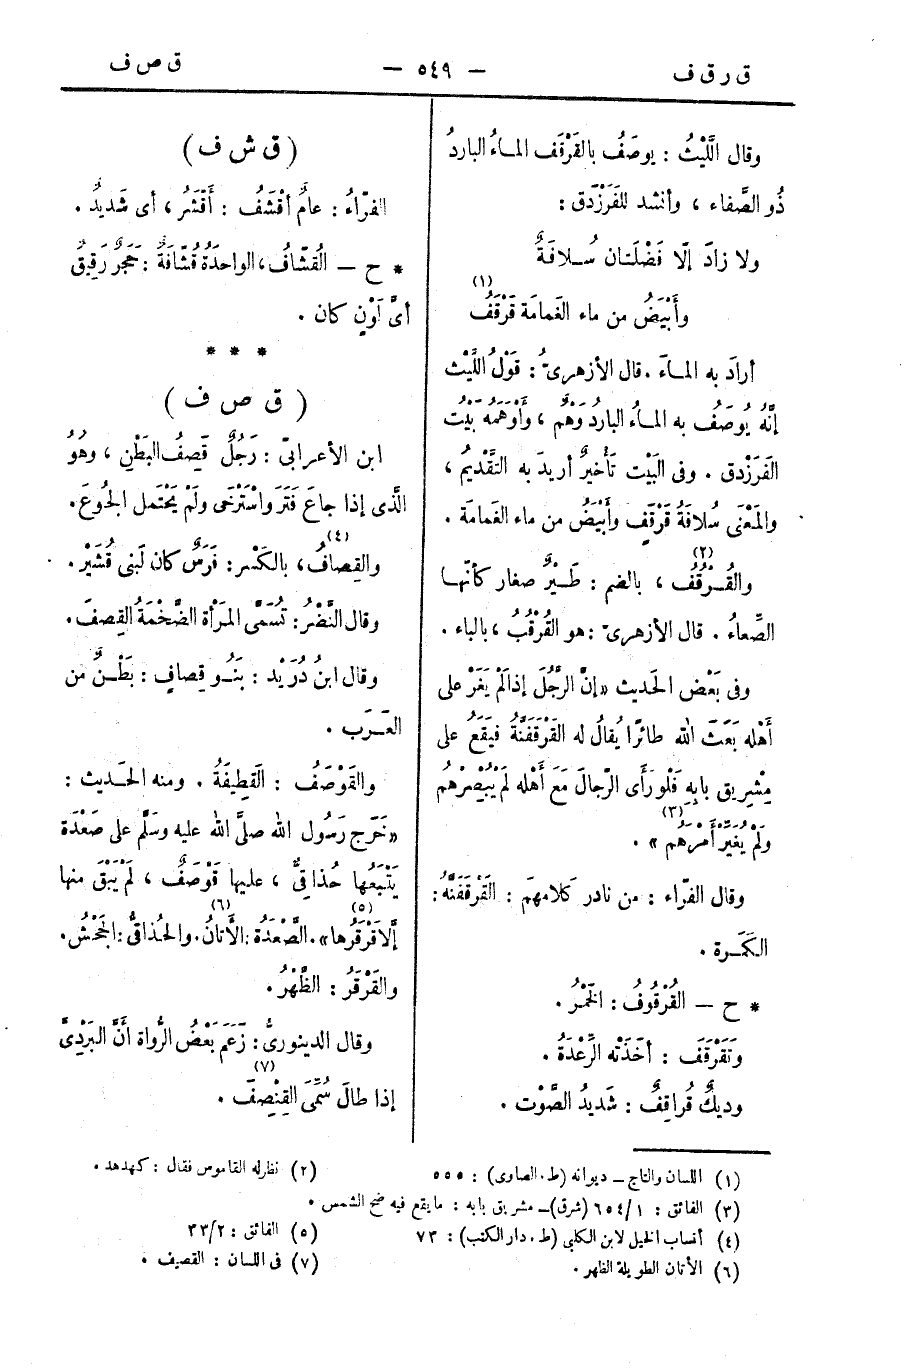 ق ر ق ف — ٥٤٩ — ق ص ف
وقال اللَّيْثُ : يوصَفُ بالقَرْقَف المـاءُ البارِدُ
ذُو الصَّفاء ، وأنشد للفَرَزْدَق :
ولا زادَ إلّا فَضْلَتـان سُـلافَةٌ
وأَبْيَضُ من ماء الغَمامَة قَرْقَفُ (١)
أرادَ به المـاءَ . قال الأزهرىّ : قَوْلُ اللَّيْث
إنّهُ يُوصَفُ به المـاءُ البارِدُ وَهْمٌ ، وأَوْهَمَهُ بَيْتُ
الفَرَزْدق . وفى البَيْت تَأْخيرٌ أُريدَ به التَّقْديمُ ،
والمَعْنَى سُلافَةٌ قَرْقَفٌ وأَبْيَضُ من ماء الغَمامَة .
والقُـرْقُفُ (٢) ، بالضم : طَـيْرٌ صغار كأنّها
الصِّعاءُ . قال الأزهرىّ : هو القُرْقُبُ ، بالباء .
وفى بَعْض الحَديث «إنّ الرَّجُلَ إذا لَمْ يَغَرْ على
أَهْله بَعَثَ الله طائرًا يُقالُ له القَرْقَفَنَّةُ فيَقَعُ على
مِشْرِيق بابِه فَلَو رَأَى الرِّجالَ مَعَ أَهْله لَمْ يُبْصِرْهُم
ولَمْ يُغَيِّرْ أَمْرَهُم (٣) » .
وقال الفَرّاء : من نادر كَلامهم : القَرْقَفَنَّةُ :
الكَمَـرة .
* ح – القُرْقُوفُ : الخَمْرُ .
وتَقَرْقَفَ : أَخَذَتْه الرِّعْدَةُ .
وديكٌ قُراقِفٌ : شَديدُ الصَّوْت .
(ق ش ف)
الفَرّاءُ : عامٌ أَقْشَفُ : أَقْشَرُ ، أى شَديدٌ .
* ح – القُشّافُ ، الواحدَةُ قُشّافَةٌ : حَجَرٌ رَقيقٌ
أىَّ لَوْنٍ كان .
* * *
( ق ص ف )
ابن الأعرابىّ : رَجُلٌ قَصِفُ البَطْنِ ، وهُوَ
الَّذى إذا جاعَ فَتَرَ واسْتَرْخَى ولَمْ يَحْتَمل الجُوعَ .
والقِصافُ (٤) ، بالكَسْر : فَرَسٌ كان لَبنى قُشَيْر .
وقال النَّضْرُ : تُسَمَّى المَرْأَة الضَّخْمَةُ القِصافَ .
وقال ابنُ دُرَيْد : بَنُــو قِصافٍ : بَطْــنٌ من
العَــرَب .
والقَوْصَفُ : القَطيفَةُ . ومنه الحَديث :
«خَرَج رَسُول الله صلَّى الله عليه وسلَّم على صَعْدَة
يَتْبَعُها حُذاقىٌّ ، عليها قَوْصَفٌ ، لَمْ يَبْقَ منها
إلّا قَرْقَرُها (٥)» . الصَّعْدَةُ : الأَتانُ (٦) . والحُذاقىُّ : الجَحْشُ .
والقَرْقَرُ : الظَّهْرُ .
وقال الدينورىُّ : زَعَمَ بَعْضُ الرُّواة أَنَّ البَرْدِىَّ
إذا طالَ سُمِّىَ القِنْصِفَ (٧) .
(١) اللسان والتاج – ديوانه (ط. الصاوى) : ٥٥٥
(٢) نظر له القاموس فقال : كهدهد .
(٣) الفائق : ١/ ٦٥٤ (شرق) – مشريق بابه : ما يقع فيه ضح الشمس .
(٤) أنساب الخيل لابن الكلبى (ط . دار الكتب) : ٧٣
(٥) الفائق : ٢/ ٣٣
(٦) الأتان الطويلة الظهر .
(٧) فى اللسان : القصيف .